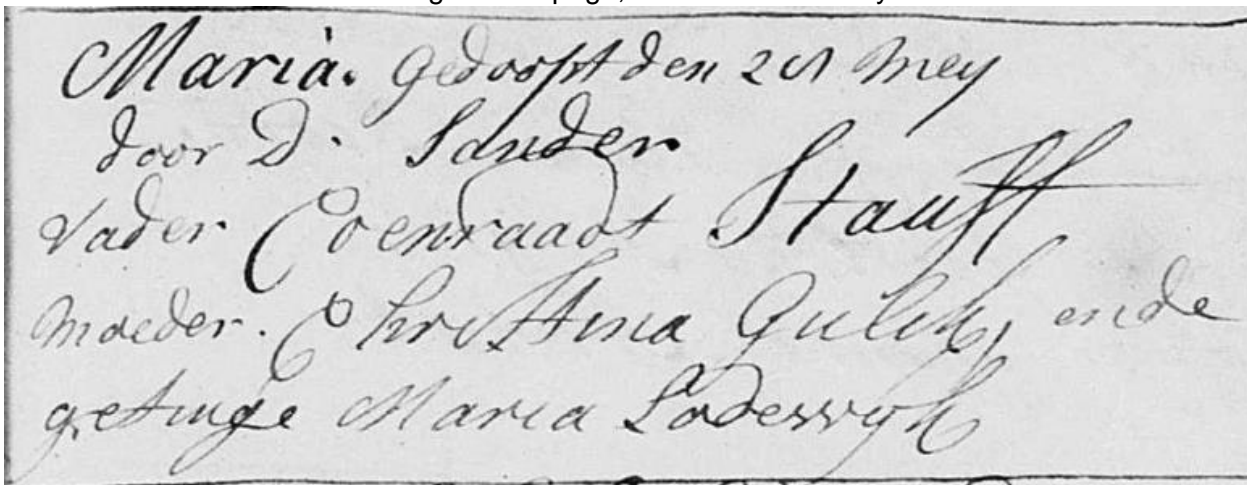 Maria. Gedoopt den 21 Mey
door D. Sander
Vader Coenraadt Stauff
Moeder. Christina Gulik, ende
getuige Maria Lodewyk